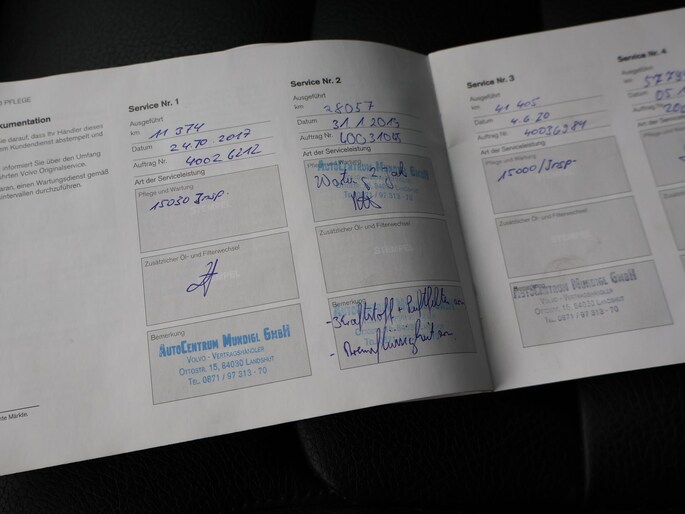 PFLEGE
kumentation
e darauf, dass Ihr Händler dieses
m Kundendienst abstempelt und
informiert Sie über den Umfang
ührten Volvo Originalservice.
aran, einen Wartungsdienst gemäß
ntervallen durchzuführen.
te Märkte.
Service Nr. 1
Ausgeführt
km 11 374
Datum 24.10.2017
Auftrag Nr. 40026212
Art der Serviceleistung
Pflege und Wartung
15030 Insp.
Zusätzlicher Öl- und Filterwechsel
Bemerkung
AutoCentrum Mundigl GmbH
Volvo - Vertragshändler
Ottostr. 15, 84030 Landshut
Tel. 0871 / 97 313 - 70
Service Nr. 2
Ausgeführt
km 28057
Datum 31.1.2019
Auftrag Nr. 40031095
Art der Serviceleistung
AutoCentrum Mundigl GmbH
Zusätzlicher Öl- und Filterwechsel
Bemerkung
- Kraftstoff + Luftfilter
- Bremsflüssigkeit
Service Nr. 3
Ausgeführt
km 41 405
Datum 4.6.20
Auftrag Nr. 40036984
Art der Serviceleistung
Pflege und Wartung
15000/Insp.
Zusätzlicher Öl- und Filterwechsel
AutoCentrum Mundigl GmbH
Volvo - Vertragshändler
Ottostr. 15, 84030 Landshut
Tel. 0871 / 97 313 - 70
Service Nr. 4
Ausgeführt
km
Datum
Auftrag Nr.
Art der Serviceleistung
Pflege und Wartung
Zusätzlicher
Bemerkung